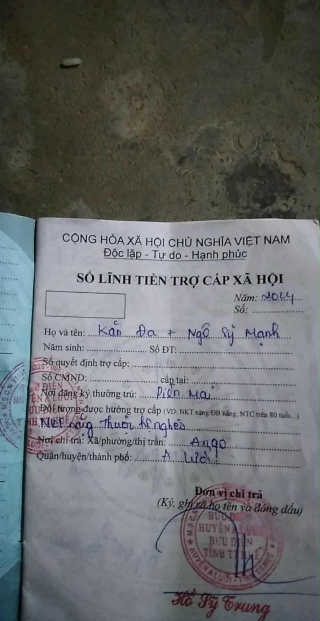 CỘNG HÒA XÃ HỘI CHỦ NGHĨA VIỆT NAM
Độc lập - Tự do - Hạnh phúc
SỔ LĨNH TIỀN TRỢ CẤP XÃ HỘI
Năm: 2024
Số:
Họ và tên: Kăn Đa + Ngô Sỹ Mạnh
Năm sinh: Số ĐT:
Số quyết định trợ cấp:
Số CMND: cấp tại:
Nơi đăng ký thường trú: Piên Mai
Đối tượng được hưởng trợ cấp (VD: NKT nặng ĐB nặng, NTC trên 80 tuổi...)
NKT nặng thuộc hộ nghèo
Nơi chi trả: Xã/phường/thị trấn: A ngo
Quận/huyện/thành phố: A Lưới
Đơn vị chi trả
(Ký, ghi rõ họ tên và đóng dấu)
BƯU ĐIỆN
HUYỆN A LƯỚI
BƯU ĐIỆN
Hồ Sỹ Trung